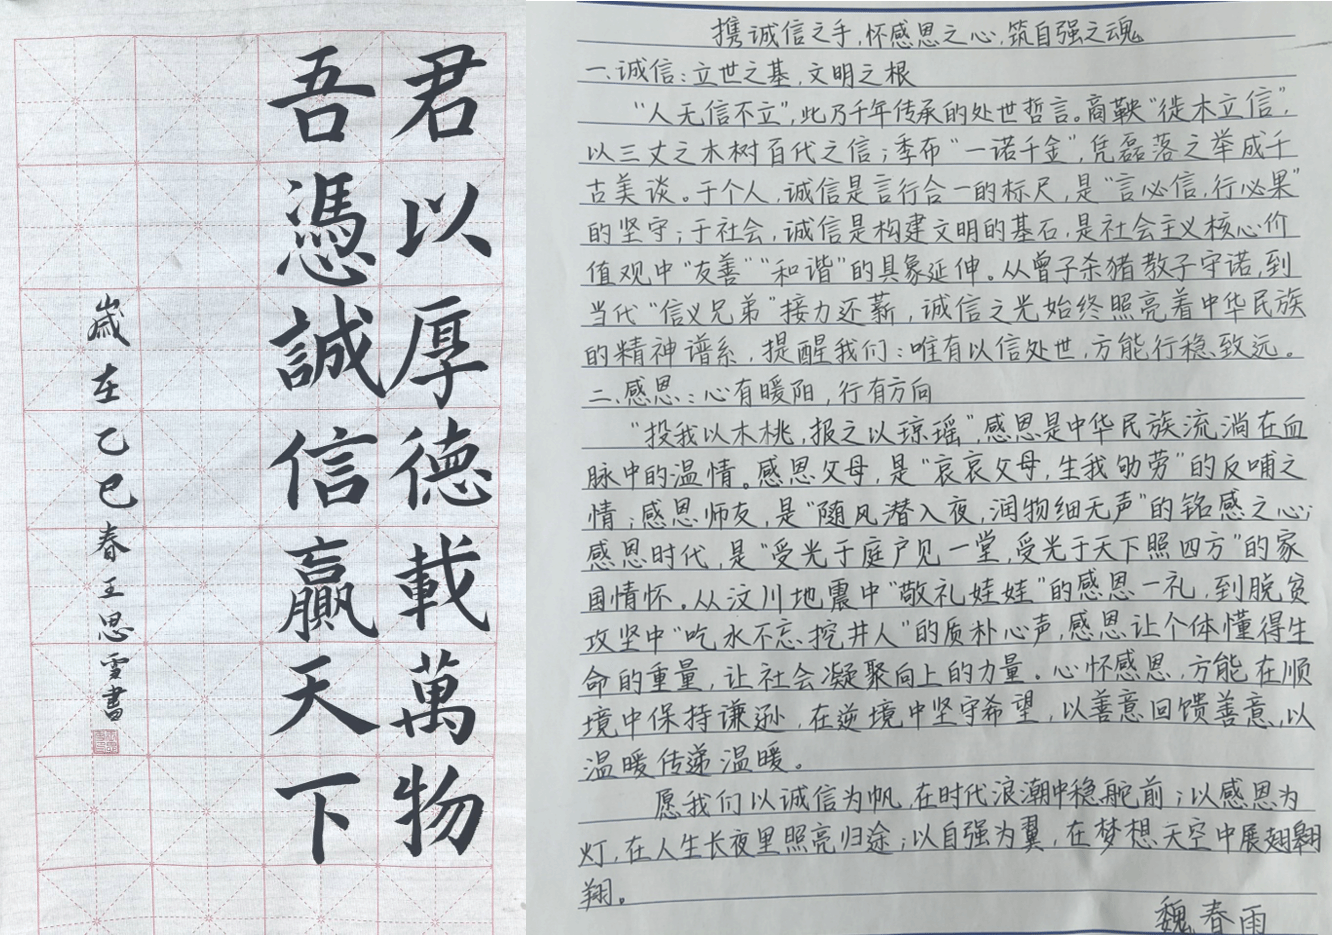 君以厚德載萬物
吾憑誠信贏天下
歲在乙巳春王思雪書
携诚信之手,怀感恩之心,筑自强之魂
一.诚信:立世之基,文明之根
“人无信不立”,此乃千年传承的处世哲言。商鞅“徙木立信”,
以三丈之木树百代之信;季布“一诺千金”,凭磊落之举成千
古美谈。于个人,诚信是言行合一的标尺,是“言必信,行必果”
的坚守;于社会,诚信是构建文明的基石,是社会主义核心价
值观中“友善”“和谐”的具象延伸。从曾子杀猪教子守诺,到
当代“信义兄弟”接力还薪,诚信之光始终照亮着中华民族
的精神谱系,提醒我们:唯有以信处世,方能行稳致远。
二.感恩:心有暖阳,行有方向
“投我以木桃,报之以琼瑶”,感恩是中华民族流淌在血
脉中的温情。感恩父母,是“哀哀父母,生我劬劳”的反哺之
情;感恩师友,是“随风潜入夜,润物细无声”的铭感之心;
感恩时代,是“受光于庭户见一堂,受光于天下照四方”的家
国情怀。从汶川地震中“敬礼娃娃”的感恩一礼,到脱贫
攻坚中“吃水不忘挖井人”的质朴心声,感恩让个体懂得生
命的重量,让社会凝聚向上的力量。心怀感恩,方能在顺
境中保持谦逊,在逆境中坚守希望,以善意回馈善意,以
温暖传递温暖。
愿我们以诚信为帆,在时代浪潮中稳舵前;以感恩为
灯,在人生长夜里照亮归途;以自强为翼,在梦想天空中展翅翱
翔。
魏春雨